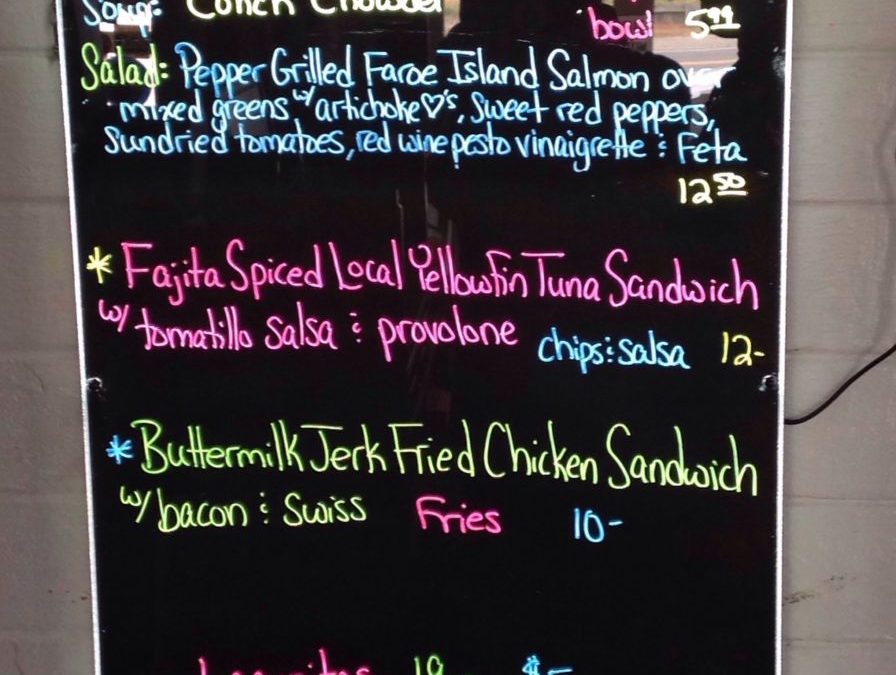 Soup: Conch Chowder bowl 5.99
Salad: Pepper Grilled Faroe Island Salmon over
mixed greens w/ artichoke ♡'s, sweet red peppers,
sundried tomatoes, red wine pesto vinaigrette & Feta
12.50
* Fajita Spiced Local Yellowfin Tuna Sandwich
w/ tomatillo salsa & provolone chips & salsa 12-
* Buttermilk Jerk Fried Chicken Sandwich
w/ bacon & Swiss Fries 10-